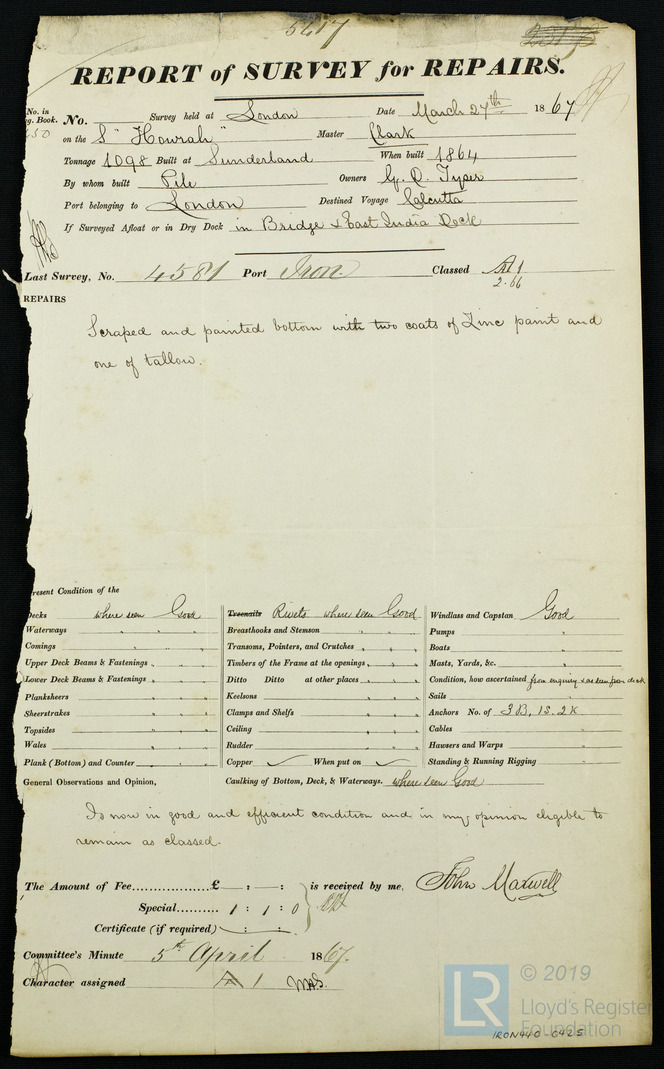 5617
REPORT of SURVEY for REPAIRS.
No. in
g. Book.
No. Survey held at London Date March 27th 1867
on the S "Howrah" Master Clark
Tonnage 1098 Built at Sunderland When built 1864
By whom built Pile Owners G. D. Tyser
Port belonging to London Destined Voyage Calcutta
If Surveyed Afloat or in Dry Dock in Bridge & East India Dock
Last Survey, No. 4581 Port Iron Classed A 1
2.66
REPAIRS
Scraped and painted bottom with two coats of Zinc paint and
one of tallow.
Present Condition of the
Decks where seen Good Treenails Rivets where seen Good Windlass and Capstan Good
Waterways " " " Breasthooks and Stemson " " " Pumps "
Comings " " " Transoms, Pointers, and Crutches " " " Boats "
Upper Deck Beams & Fastenings " " " Timbers of the Frame at the openings " " " Masts, Yards, &c. "
Lower Deck Beams & Fastenings " " " Ditto Ditto at other places " " " Condition, how ascertained from enquiry & as seen from deck
Planksheers " " " Keelsons " " " Sails "
Sheerstrakes " " " Clamps and Shelfs " " " Anchors No. of 3B, 1S. 2K
Topsides " " " Ceiling " " " Cables "
Wales " " " Rudder " " " Hawsers and Warps "
Plank (Bottom) and Counter " " " Copper ✓ When put on ✓ Standing & Running Rigging "
General Observations and Opinion, Caulking of Bottom, Deck, & Waterways. where seen Good
Is now in good and efficient condition and in my opinion eligible to
remain as classed.
The Amount of Fee............... £ : : is received by me, John Maxwell
Special.......... 1 : 1 : 0
Certificate (if required) : :
Committee's Minute 5th April 1867.
Character assigned A 1
LR © 2019
Lloyd's Register
Foundation
IRON440-0425